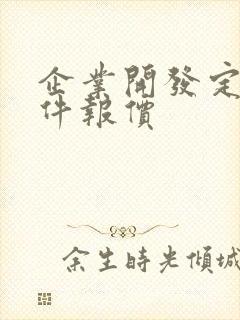 企業開發定
件報價
余生時光傾城